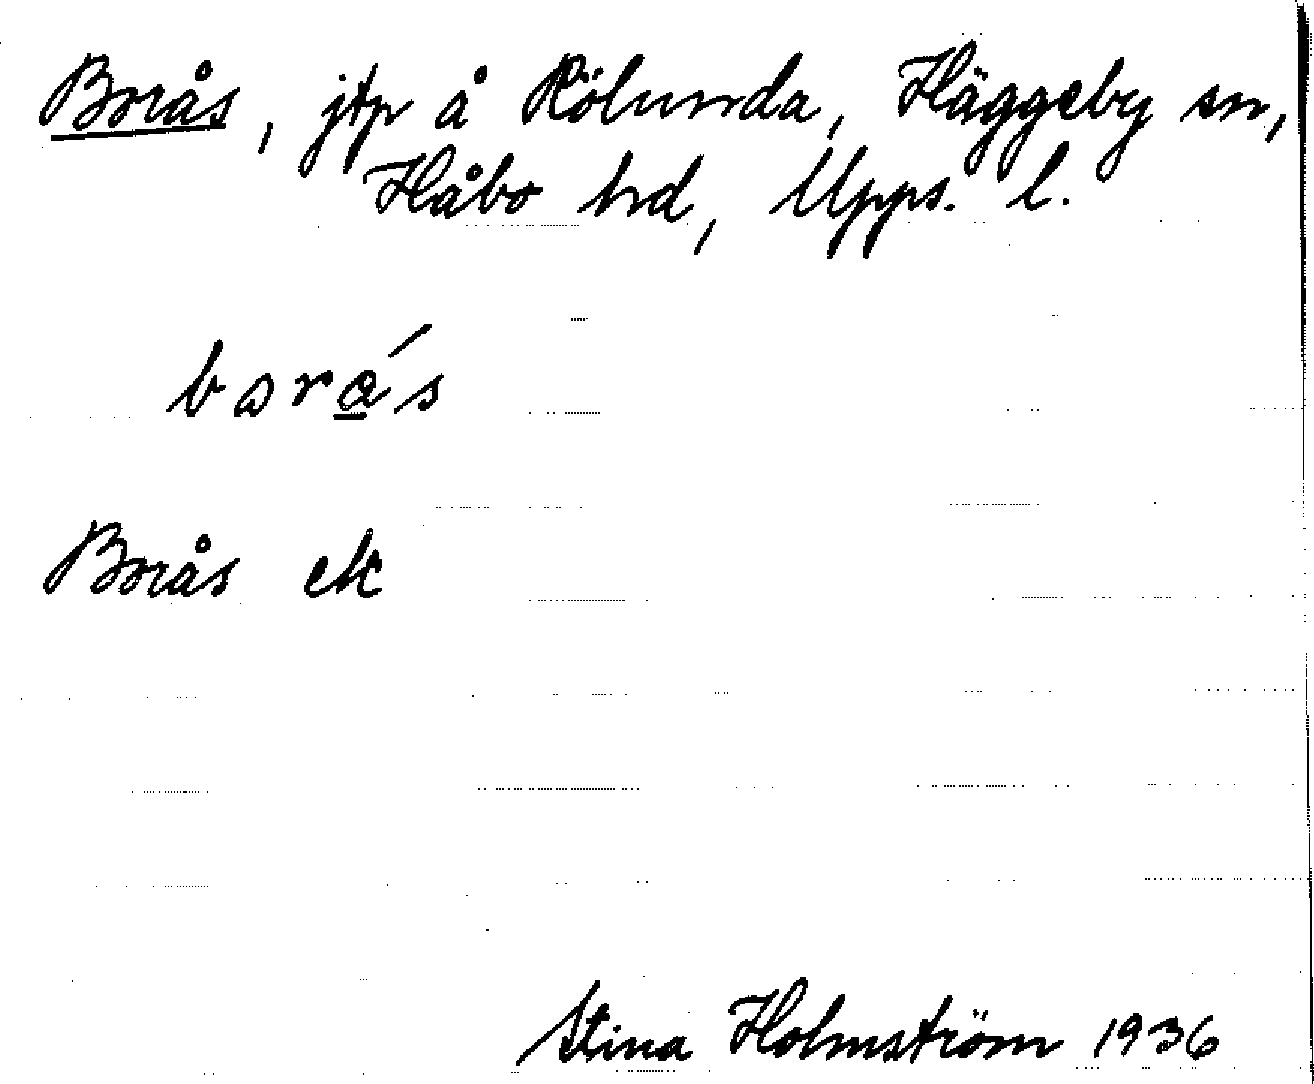 Borås, jtp å Rölunda, Häggeby sn,
Håbo hd, Upps. l.
Borås ek
Stina Holmström 1936